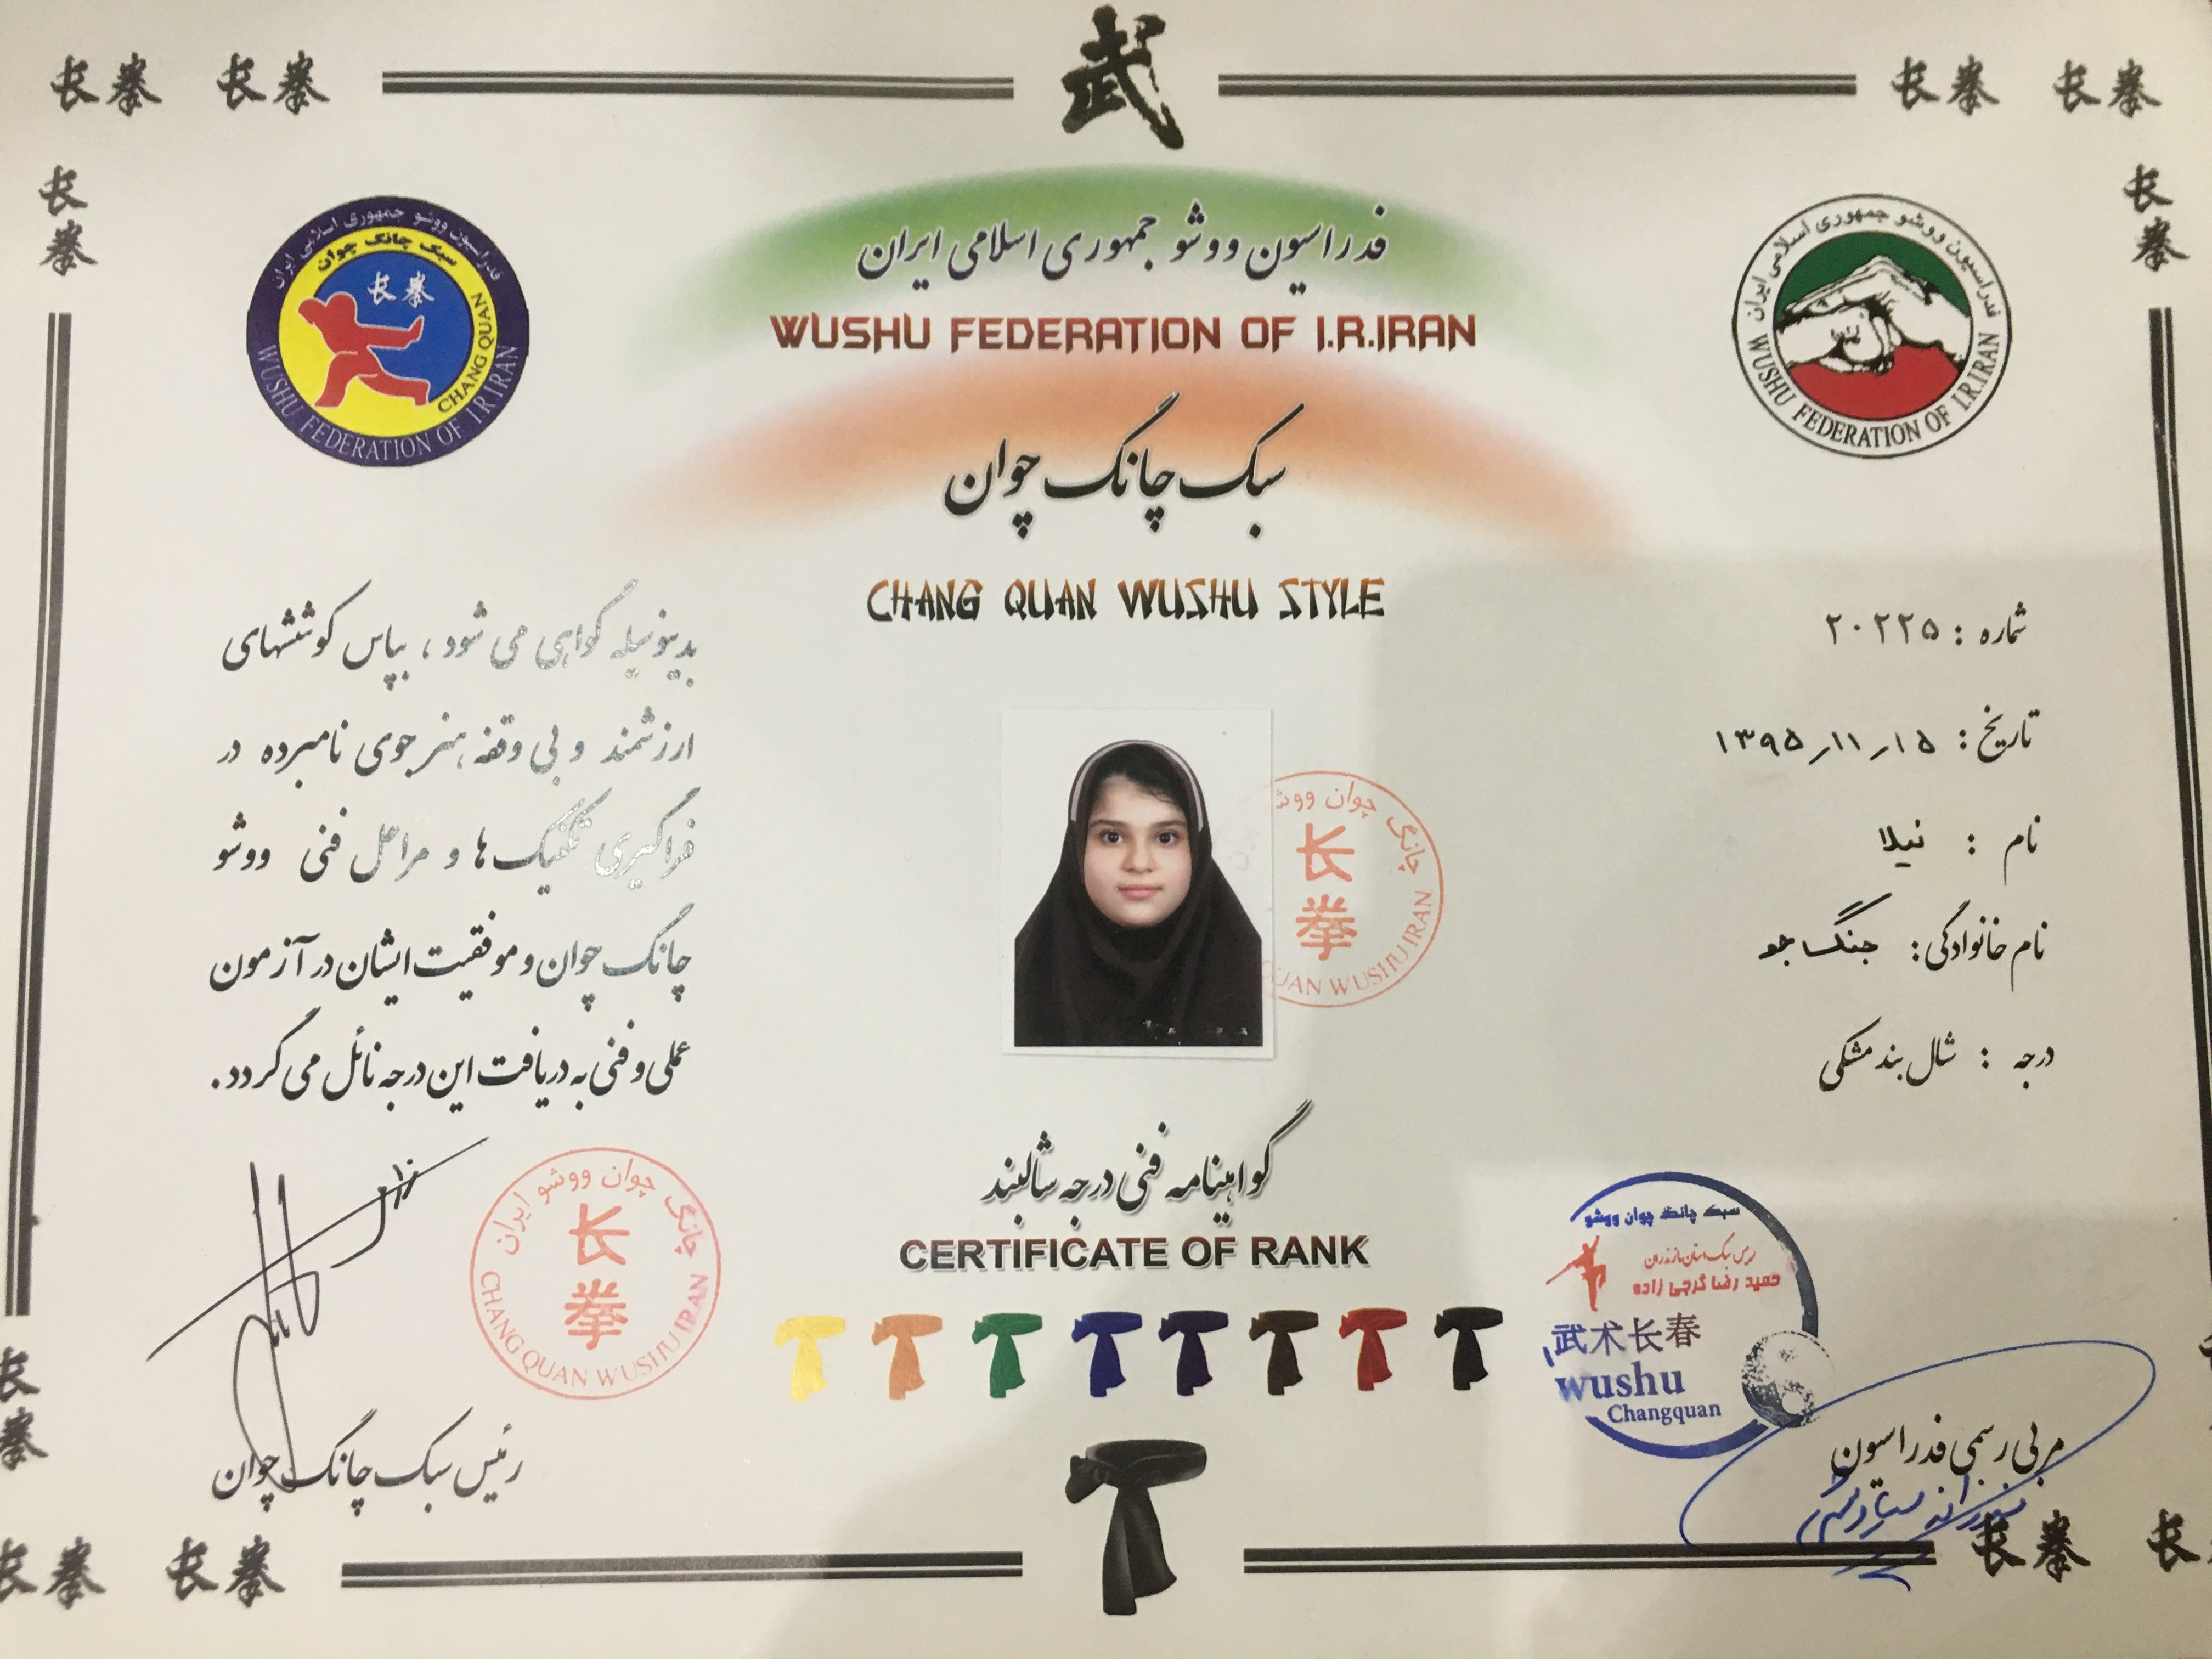 长拳 长拳 武 长拳 长拳
长拳
长拳
فدراسیون ووشو جمهوری اسلامی ایران
سبک چانگ چوان
长拳
CHANG QUAN
WUSHU FEDERATION OF I.R.IRAN
فدراسیون ووشو جمهوری اسلامی ایران
WUSHU FEDERATION OF I.R.IRAN
فدراسیون ووشو جمهوری اسلامی ایران
WUSHU FEDERATION OF I.R.IRAN
سبک چانگ چوان
CHANG QUAN WUSHU STYLE
شماره : ۲۰۲۲۵
تاریخ : ۱۳۹۵٫۱۱٫۱۵
نام : نیلا
نام خانوادگی : جنگ جو
درجه : شال بند مشکی
چانگ چوان ووشو
长拳
QUAN WUSHU IRAN
بدینوسیله گواهی می شود ، بپاس کوششهای
ارزشمند و بی وقفه هنرجوی نامبرده در
فراگیری تکنیک ها و مراحل فنی ووشو
چانگ چوان و موفقیت ایشان در آزمون
عملی و فنی به دریافت این درجه نائل می گردد.
گواهینامه فنی درجه شالبند
CERTIFICATE OF RANK
چانگ چوان ووشو ایران
长拳
CHANG QUAN WUSHU IRAN
رئیس سبک چانگ چوان
سبک چانگ چوان ووشو
رئیس سبک استان مازندران
حمید رضا گرجی زاده
武术长春
wushu
Changquan
مربی رسمی فدراسیون
长拳
长拳 长拳 长拳 长